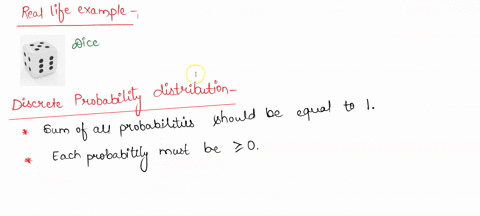 Real life example -
Dice
Discrete Probability distribution -
* Sum of all probabilities should be equal to 1.
* Each probability must be ≥ 0.